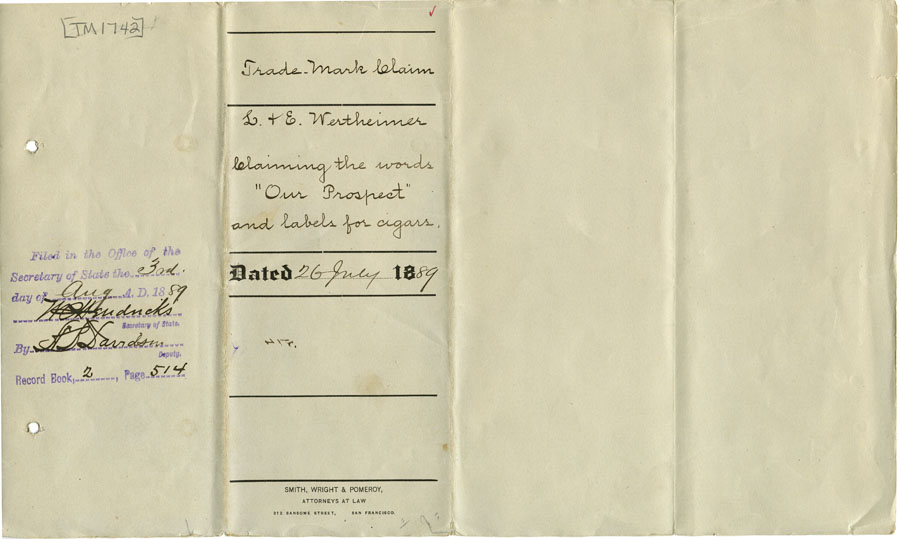 [TM1742]
Filed in the Office of the
Secretary of State the 3rd.
day of Aug A.D. 1889
W C Hendricks
Secretary of State.
By Davidson
Deputy.
Record Book, 2, Page 514
Trade-Mark Claim
L. & E. Wertheimer
Claiming the words
"Our Prospect"
and labels for cigars.
Dated 26 July 1889
SMITH, WRIGHT & POMEROY,
ATTORNEYS AT LAW
SANSOME STREET, SAN FRANCISCO.